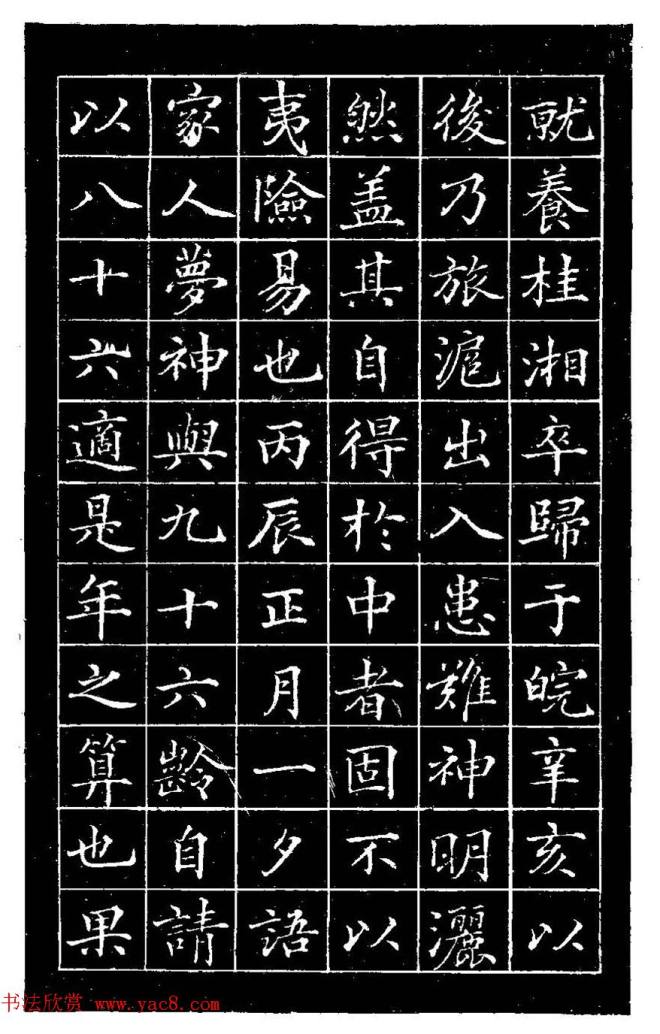 就養桂湘卒歸于皖辛亥以
後乃旅滬出入患難神明灑
然盖其自得於中者固不以
夷險易也丙辰正月一夕語
家人夢神與九十六齡自請
以八十六適是年之算也果
书法欣赏 www.yac8.com